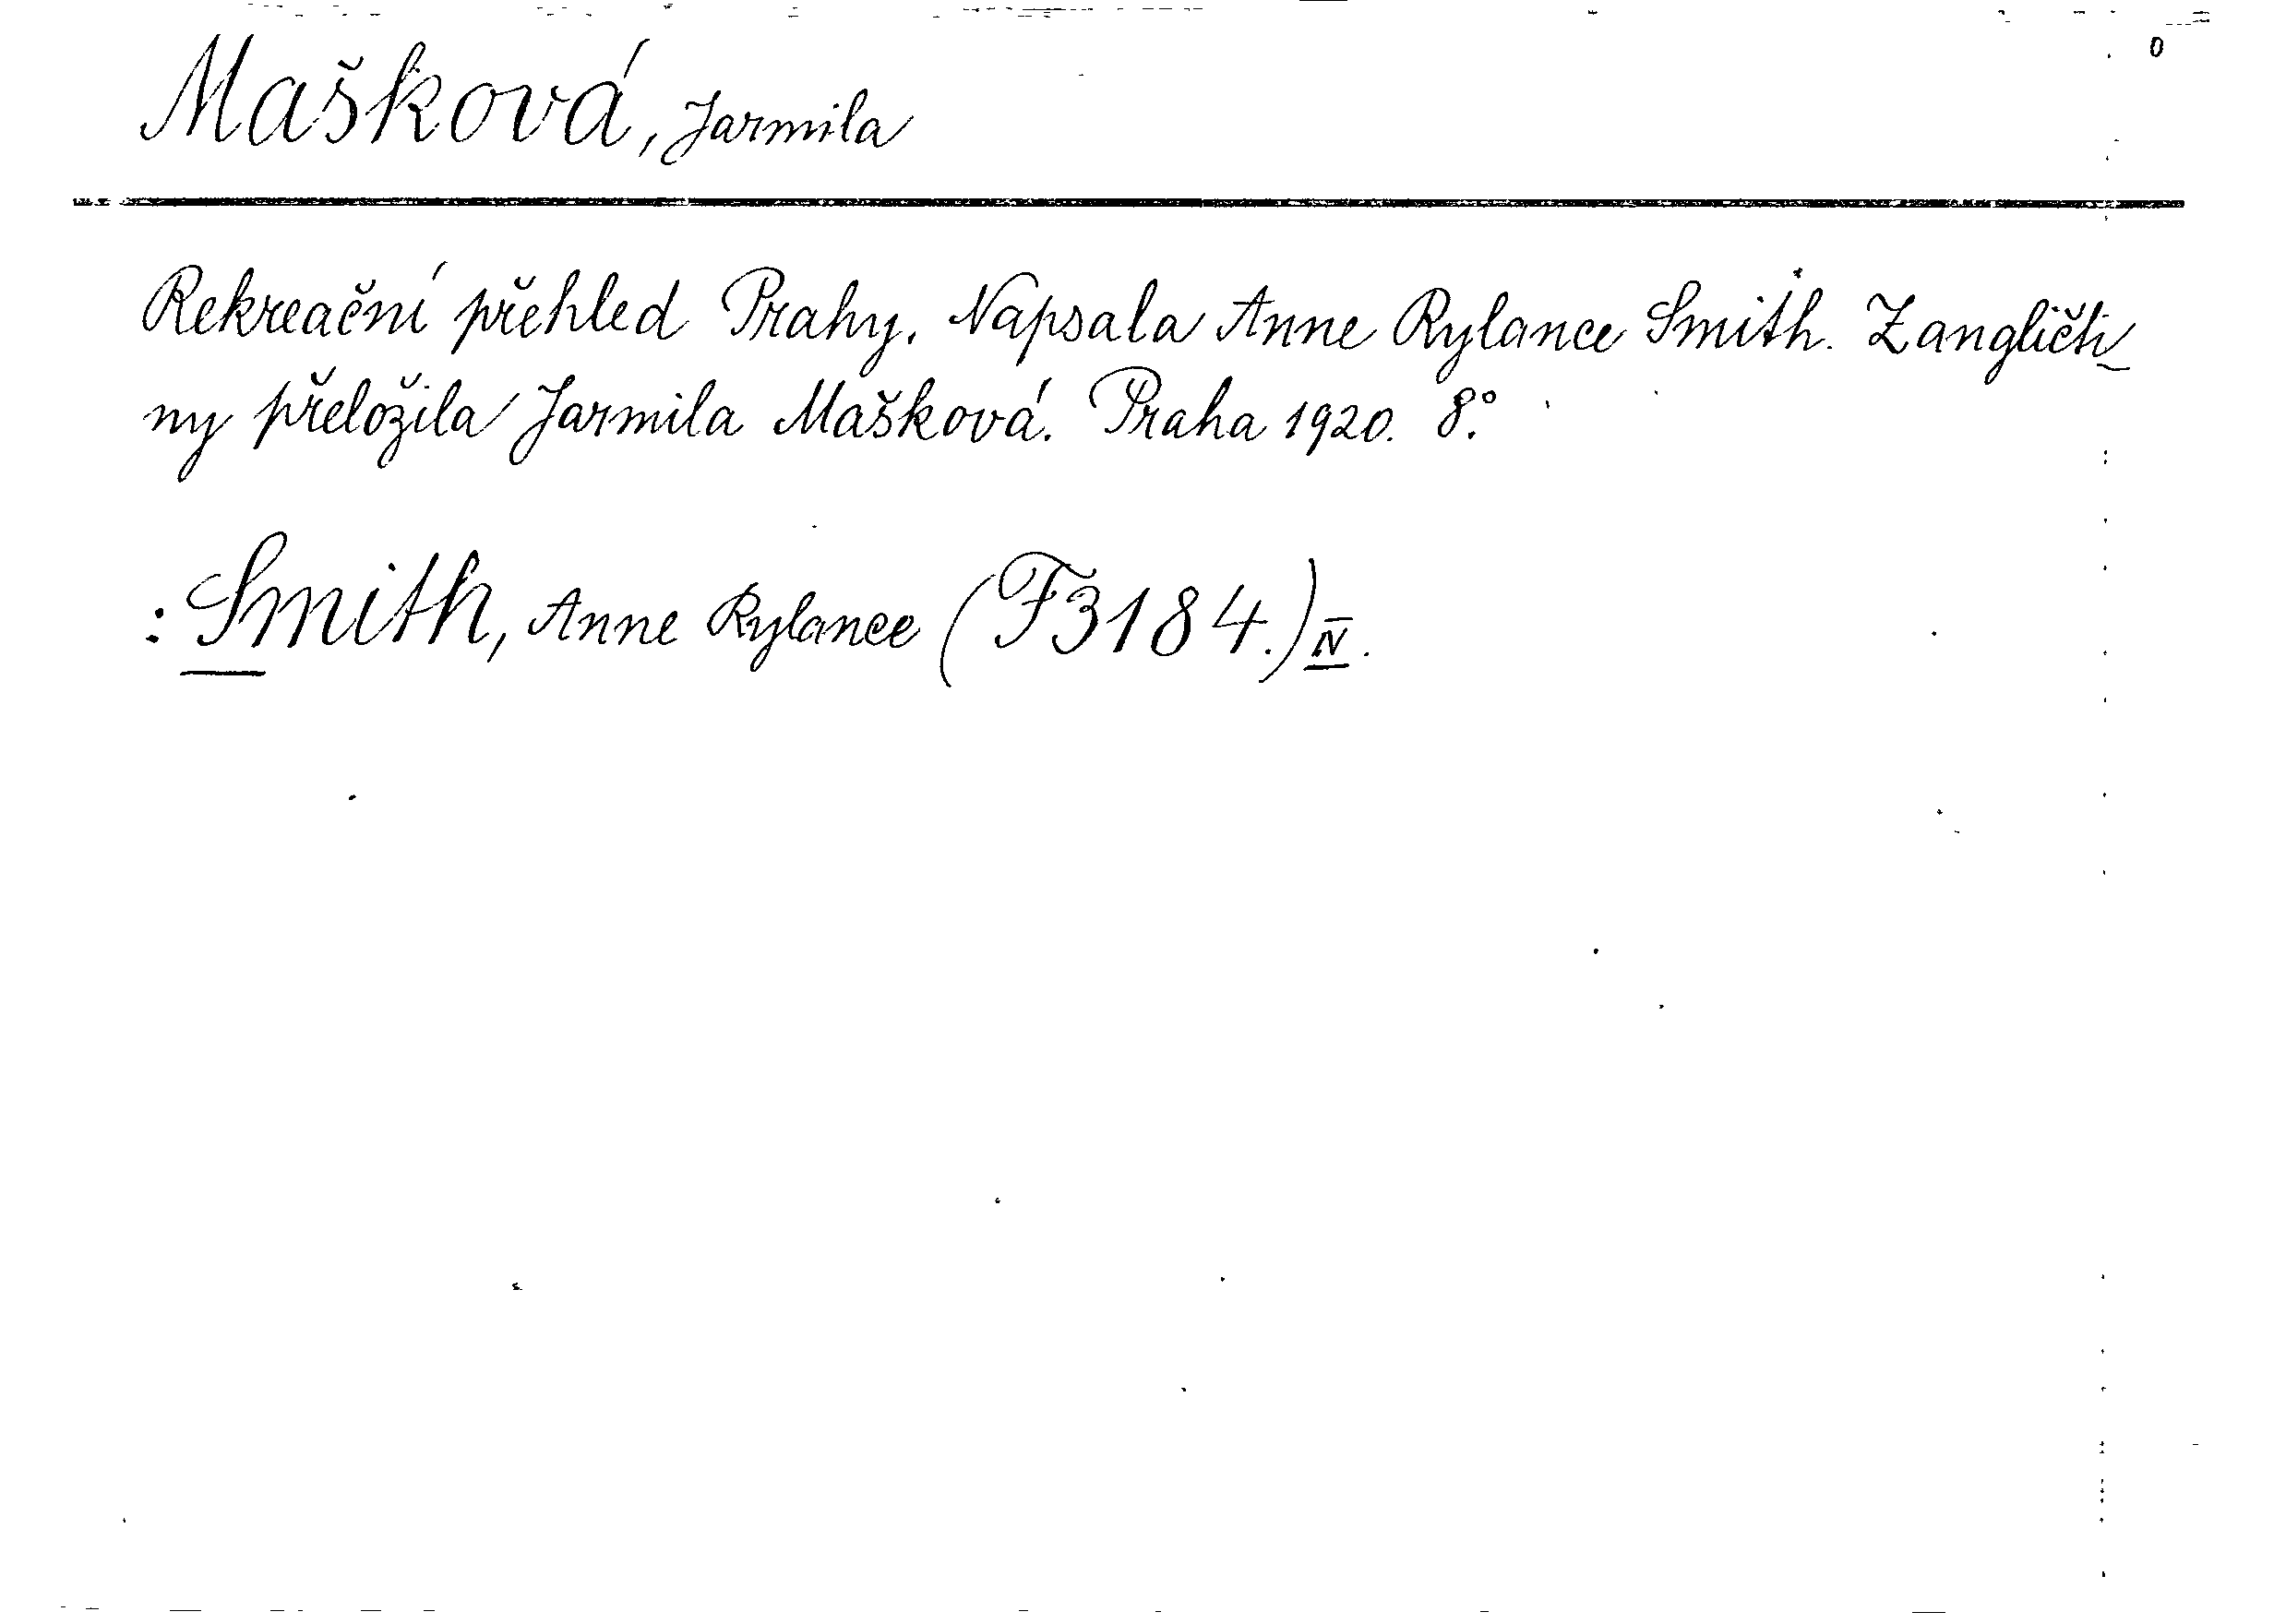 Mašková, Jarmila
Rekreační přehled Prahy. Napsala Anne Rylance Smith. Z angličti_
ny přeložila Jarmila Mašková. Praha 1920. 8°.
: Smith, Anne Rylance (F3184.) IV.